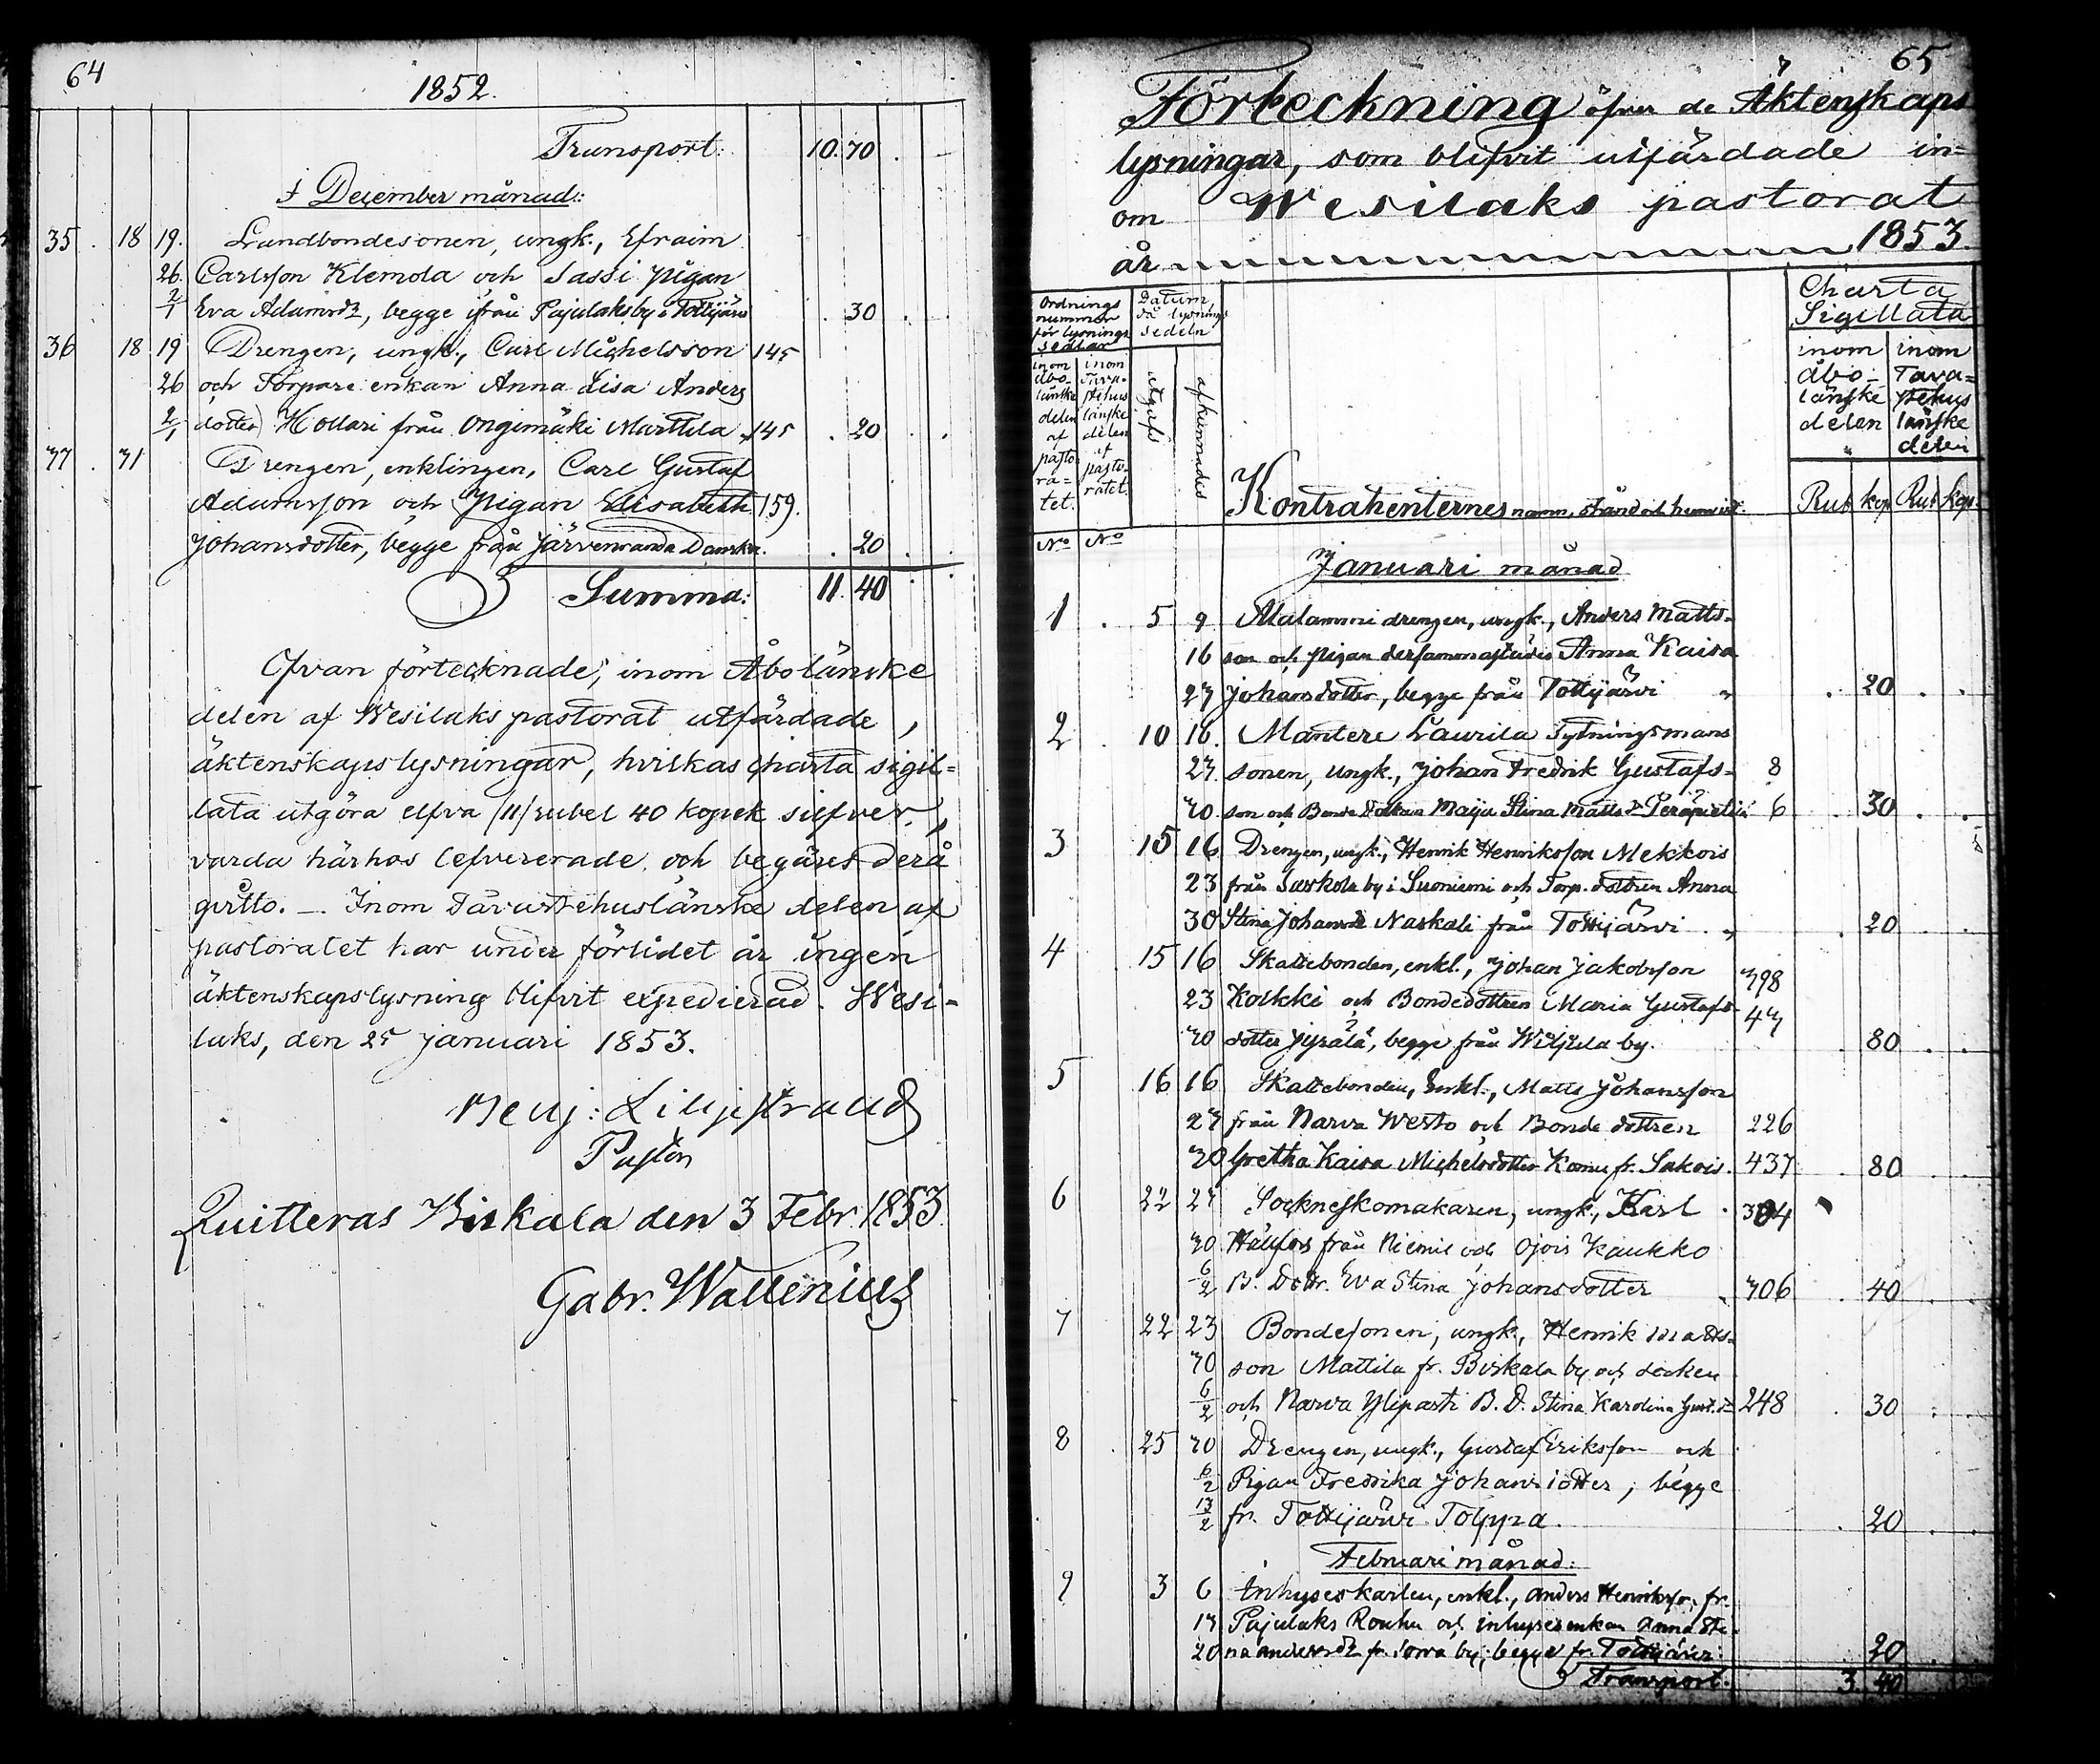 64
1852.
Transport: 10. 70
i December månad:
35 . 18 19. Landbondesonen, ungk., Efraim
26. Carlsson Klemola och Sassi pigan
2/1 Eva Adamsdr, begge ifrån Pajulaks by i Tottijärvi . 30
36 18 19 Drengen, ungk., Carl Michelsson 145
26 och Torpare enkan Anna Lisa Anders
2/1 dotter Hollari från Ongimäki Marttila 145 . 20 . .
37 . 31 Drengen, enklingen, Carl Gustaf
Adamsson och Pigan Elisabeth 159.
Johansdotter, begge från Järvenranda Danska. . 20
Summa: 11. 40
Ofvan förtecknade, inom Åbolänske
delen af Wesilaks pastorat utfärdade,
äktenskapslysningar, hvilkas charta sigil=
lata utgöra elfva /11/ rubel 40 kopek silfver,
varda härhos lefvererade och begäres derå
qvitto. — Inom Tavastehuslänske delen af
pastoratet har under förlidet år ingen
äktenskapslysning blifvit expedierad. Wesi-
laks, den 25 Januari 1853.
Benj: Liljestrand
Pastor
Quitteras Birkala den 3 Febr. 1853.
Gabr. Wallenius
65
Förteckning öfver de Äktenskaps
lysningar, som blifvit utfärdade in=
om Wesilaks pastorat
år 1853.
Ordnings nummer för lysnings sedlar
Datum, då lysnings sedeln
Charta Sigillata
inom Åbo- länske delen af pasto- ra= tet.
inom Tava- stehus länske delen af pasto- ratet.
utgafs
afkunnades
inom Åbo- länske delen
inom Tava= stehus länske delen
Kontrahenternes namn, stånd och hemvist. Rub kop Rub kop.
No No
Januari månad
1 . 5 9 Alalammi drengen, ungk., Anders Matts-
16 son och pigan dersammastädes Anna Kaisa
23 Johansdotter, begge från Tottijärvi „ . 20 . .
2 . 10 16. Mantere Laurila Sytningsmans
23. sonen, ungk., Johan Fredrik Gustafs- 8
30 son och Bonde dottren Maja Stina Matts dr 6 . 30 . .
3 15 16 Drengen, ungk., Henrik Henriksson Mekkois
23 från Sarkola by i Suoniemi och Torp. dottren Anna
30 Stina Johansdr Naskali från Tottijärvi . „ . 20 . .
4 15 16 Skattebonden, enkl., Johan Jakobsson 398
23 Koikki och Bondedottren Maria Gustafs- 43
30 dotter Jyrälä, begge från Wiljula by. . 80 . .
5 16 16 Skattebonden, Enkl., Matts Johansson
23 från Narva Westo och Bonde dottren 226
30 Gretha Kaisa Michelsdotter Komu fr. Sakois. 437 . 80 . .
6 22 23 Sockneskomakaren, ungk., Karl . 304
30 från Niemis och Ojois Kaukko
6/2 B. Dottr. Eva Stina Johansdotter 306 . 40 . .
7 22 23 Bondesonen, ungk., Henrik Matts-
30 son Mattila fr. Birkala by och socken
6/2 och Narva Ylipasti B. D. Stina Karolina Gust. dr 248 . 30 . .
8 . 25 30 Drengen, ungk., Gustaf Eriksson och
6/2 Pigan Fredrika Johansdotter, begge
13/2 fr. Tottijärvi Tolppa. . 20 . .
Februari månad:
9 3 6 Inhyseskarlen, enkl., Anders Henriksson, fr.
13 Pajulaks Rouhu och inhysesenkan Anna Sti-
20 na Andersdr fr. Sorva by, begge fr. Tottijärvi. 20
Transport. 3. 40